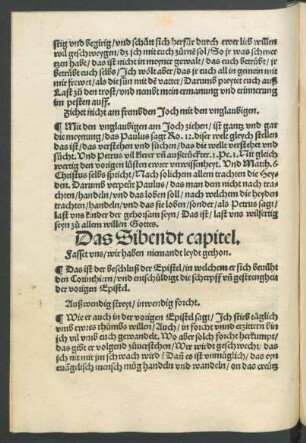 stig vnd begirig/ vnd schönt sich herfür durch ewer lieb willen
wil geschweygen/ dz ich mit euch zürnt sol/ So jr was schmer
tzen habt/ das ist nicht in meyner gewalt/ das euch betrübt/ jr
betrübt euch selbs/ Ich wölt aber/ das jr euch all in gemein mit
mir frewet/ als die sün mit dē vatter/ Darumb preytet euch auß
Last zu den trost/ vnd nembt mein ermanung vnd erinnerung
im pesten auff.
Ziehet nicht am frembden Joch mit den vnglaubigen.
¶ Mit den vnglaubigen am Joch ziehen/ ist gantz vnd gar
die meynung/ das Paulus sagt Ro. 12. diser welt gleych stellen
das ist/ das verstehen vnd süchen/ das die welt verstehet vnd
sücht. Vnd Petrus 1. Pe. 1. Nit gleich
wertig den vorigen lüsten ewer vnwissenheyt. Vnd Matth. 6
Christus selbs spricht/ Nach solichem allem trachten die Hey
den. Darumb verpeut Paulus/ das man dem nicht nach trach
ten/ handeln/ vnd das loben soll/ nach welchem die heyden
trachten/ handeln/ vnd das sie loben/ sonder/ als Petrus sagt/
last vns kinder der gehorsam seyn/ Das ist/ last vns wilfertig
seyn zu allem willen Gottes.
Das Sibendt capitel.
Fasset vns/ wir haben niemandt leydt gethon.
¶ Das ist der beschluß der Epistel/ in welchem er sich bemüht
den Corinthiern/ vnd entschüldigt die scherpff vñ gestrengheit
der vorigen Epistel.
Außwendig streyt/ inwendig forcht.
¶ Wie er auch in der vorigen Epistel sagt/ Ich stirb täglich
vmb ewres rhümbs willen/ Auch/ in forcht vnnd erzittern bin
ich vil vmb euch gewandelt. Wo aber solch forcht herkumpt/
das gibt er volgend züuerstehen/ Wer wirdt geschwecht/ das
ich nit mit jm schwach wird? Dañ es ist vnmüglich/ das eyn
euägelisch mensch müg handeln vnd wandeln/ on das creütz